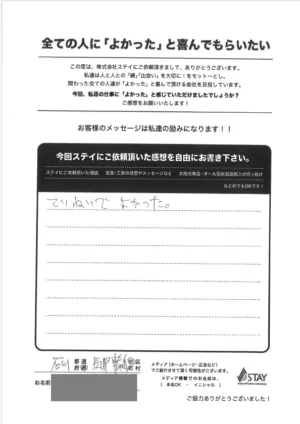 全ての人に「よかった」と喜んでもらいたい
この度は、株式会社ステイにご依頼頂きまして、ありがとうございます。
私達は人と人との「縁」「出会い」を大切に！をモットーとし、
関わった全ての人達が「よかった」と喜んで頂ける会社を目指しています。
今回、私達の仕事に「よかった」と感じていただけましたでしょうか？
ご感想をお願いいたします！
お客様のメッセージは私達の励みになります！！
今回ステイにご依頼頂いた感想を自由にお書き下さい。
ステイにご依頼頂いた理由 営業・工事の感想やメッセージなど 太陽光発電・オール電化製品購入のきっかけ
など何でもOKです！
ていねいで よかった。
石川 都道府県 市区町村
お名前
メディア（ホームページ・広告など）
でご紹介させて頂く可能性がございます。
メディア掲載でのお名前は、
（ 本名OK ・ イニシャル ）
STAY
ご協力ありがとうございました！